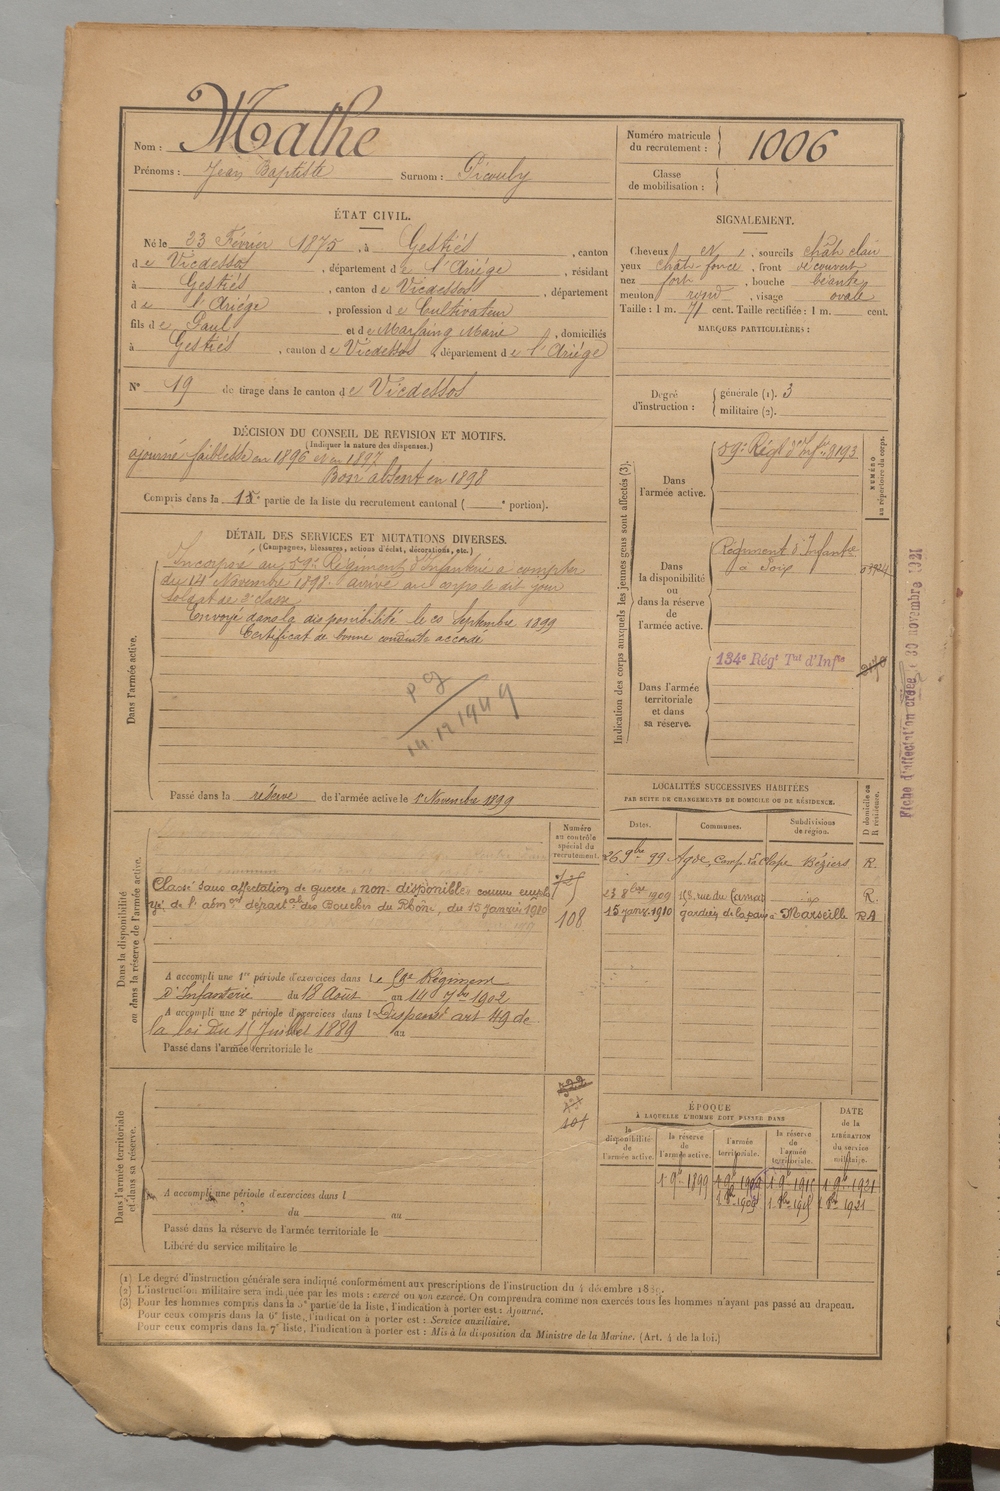 Nom : Mathe
Prénoms : Jean Baptiste Surnom : Picouly
Numéro matricule du recrutement : 1006
Classe de mobilisation :
ÉTAT CIVIL.
Né le 23 Février 1875, à Gestiès, canton
de Vicdessos, département de l'Ariége, résidant
à Gestiès, canton de Vicdessos, département
de l'Ariége, profession de Cultivateur
fils de Paul et de Marfaing Marie, domiciliés
à Gestiès, canton de Vicdessos, département de l'Ariége
N° 19 de tirage dans le canton de Vicdessos
SIGNALEMENT.
Cheveux et, sourcils chât clair
yeux chât foncé, front découvert
nez fort, bouche béante
menton rond, visage ovale
Taille : 1 m. 71 cent. Taille rectifiée : 1 m. cent.
MARQUES PARTICULIÈRES :
Degré d'instruction : générale (1). 3
militaire (2).
DÉCISION DU CONSEIL DE REVISION ET MOTIFS.
(Indiquer la nature des dispenses.)
ajourné faiblesse en 1896 et en 1897
Bon absent en 1898
Compris dans la 1e partie de la liste du recrutement cantonal ( e portion).
DÉTAIL DES SERVICES ET MUTATIONS DIVERSES.
(Campagnes, blessures, actions d'éclat, décorations, etc.)
Dans l'armée active.
Incorporé au 59e Régiment d'Infanterie à compter
du 14 Novembre 1898. arrivé au corps le dit jour
soldat de 2e classe
Envoyé dans la disponibilité le 20 Septembre 1899
Certificat de bonne conduite accordé
14.12.1949
Passé dans la réserve de l'armée active le 1er Novembre 1899
Indication des corps auxquels les jeunes gens sont affectés (3).
NUMÉRO au répertoire du corps.
Dans l'armée active.
59e Régt d'Infie 8193
Dans la disponibilité ou dans la réserve de l'armée active.
Régiment d'Infante
à Foix
Dans l'armée territoriale et dans sa réserve.
134e Régt Tal d'Infie
Fiche d'affectation créée le 30 novembre 1921
LOCALITÉS SUCCESSIVES HABITÉES
PAR SUITE DE CHANGEMENTS DE DOMICILE OU DE RÉSIDENCE.
Dates. Communes. Subdivisions de région. D domicile ou R résidence.
26 9bre 99 Agde, Béziers R.
23 8bre 1909 R.
15 janv. 1910 gardien de la paix à Marseille RA
Dans la disponibilité ou dans la réserve de l'armée active.
Numéro au contrôle spécial du recrutement.
Classé sans affectation de guerre "non-disponible" comme emplo
yé de l'admon départale des Bouches du Rhône, du 15 janvier 1910
108
A accompli une 1re période d'exercices dans le Régiment
d'Infanterie du 18 Août au 14 7bre 1902
A accompli une 2e période d'exercices dans l Dispensé art 49 de
la loi du 15 Juillet 1889 au
Passé dans l'armée territoriale le
Dans l'armée territoriale et dans sa réserve.
A accompli une période d'exercices dans l
du au
Passé dans la réserve de l'armée territoriale le
Libéré du service militaire le
ÉPOQUE
À LAQUELLE L'HOMME DOIT PASSER DANS
la disponibilité de l'armée active. la réserve de l'armée active. l'armée territoriale. la réserve de l'armée territoriale.
DATE de la LIBÉRATION du service militaire.
1 9b 1899 1 9b 1909 1 9b 1915 1 9b 1921
1 8bre 1909 1 8bre 1915 1 8bre 1921
(1) Le degré d'instruction générale sera indiqué conformément aux prescriptions de l'instruction du 4 décembre 1889.
(2) L'instruction militaire sera indiquée par les mots : exercé ou non exercé. On comprendra comme non exercés tous les hommes n'ayant pas passé au drapeau.
(3) Pour les hommes compris dans la 5e partie de la liste, l'indication à porter est : Ajourné.
Pour ceux compris dans la 6e liste, l'indication à porter est : Service auxiliaire.
Pour ceux compris dans la 7e liste, l'indication à porter est : Mis à la disposition du Ministre de la Marine. (Art. 4 de la loi.)